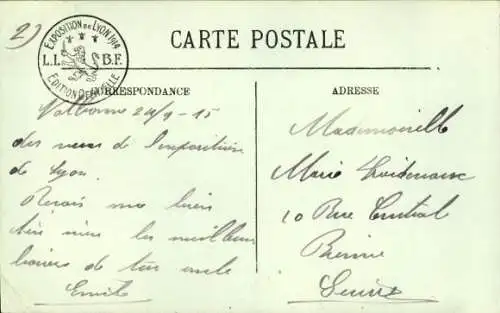 2)
EXPOSITION DE LYON 1914
L.L. B.F.
EDITION OFFICIELLE
CARTE POSTALE
CORRESPONDANCE
Valbonne 24/9-15
des vues de l'exposition
de Lyon.
Recois ma bien
chère nièce les meilleurs
baisers de ton oncle
Emile
ADRESSE
Mademoiselle
Marie
10 Rue Central
Bienne
Suisse